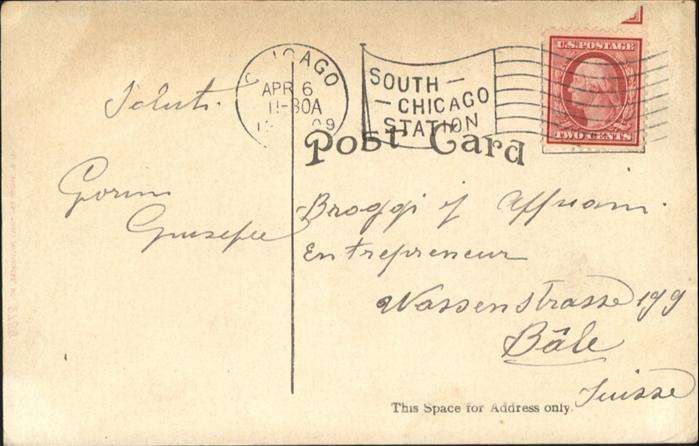 Saluti.
Gorini
Giuseppe
CHICAGO
APR 6
11-30A
09
SOUTH-
-CHICAGO
STATION
U.S. POSTAGE
TWO CENTS
Post Card
Broggi
Entrepreneur
Wassenstrasse 199
Bâle
Suisse
This Space for Address only.